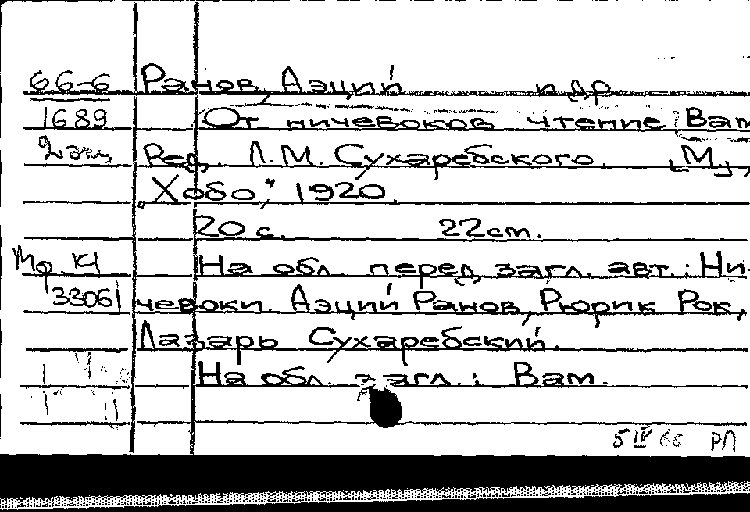 66-6 Ранов, Аэций и др.
1689 От ничевоков чтение [Вам
2 экз Ред. Л.М. Сухаребского. [М.],
„Хобо“, 1920.
20 с. 22 cm.
Мф КЧ На обл. перед загл. авт.: Ни-
33061 чевоки Аэций Ранов, Рюрик Рок,
Лазарь Сухаребский.
На обл. загл.: Вам.
5 IV 66 РП